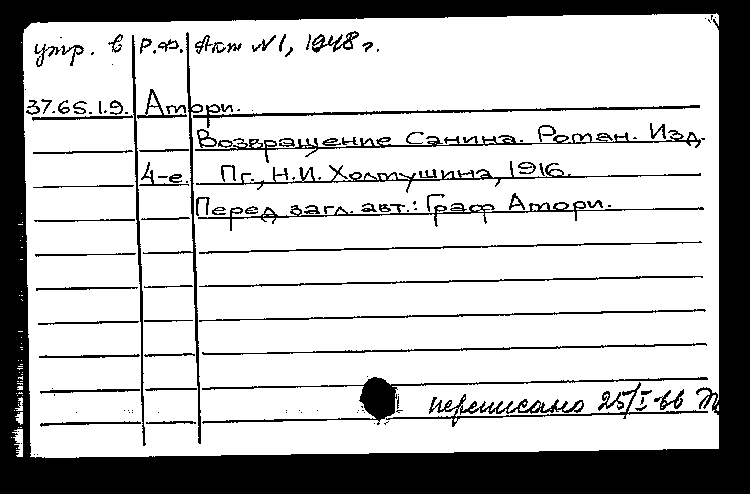 утр. в Р.Ф. Акт №1, 1948 г.
37.65.1.9. Амори.
Возвращение Санина. Роман. Изд.
4-е. Пг., Н.И. Холмушина, 1916.
Перед загл. авт.: Граф Амори.
переписано 25/I-66